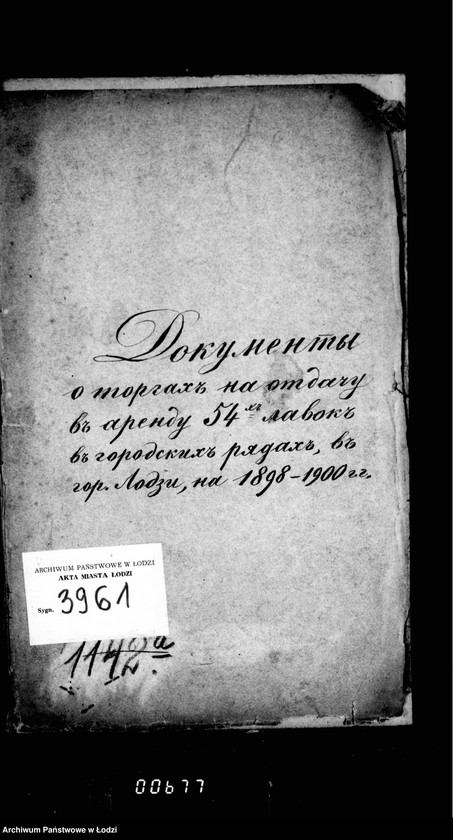 Документы
о торгахъ на отдачу
въ аренду 54хъ лавокъ
въ городскихъ рядахъ, въ
гор. Лодзи, на 1898-1900 гг.
ARCHIWUM PAŃSTWOWE W ŁODZI
AKTA MIASTA ŁODZI
Sygn. 3961
00677
Archiwum Państwowe w Łodzi